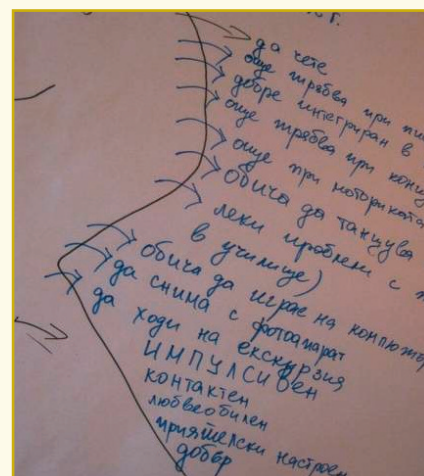 г.
да чете
още трябва при
добре интегриран в
още трябва при
още при моториката
обича да танцува
леки проблеми с
в училище)
обича да играе на компютър
да снима с фотоапарат
да ходи на екскурзия
ИМПУЛСИВЕН
контактен
любвеобилен
приятелски настроен
добър